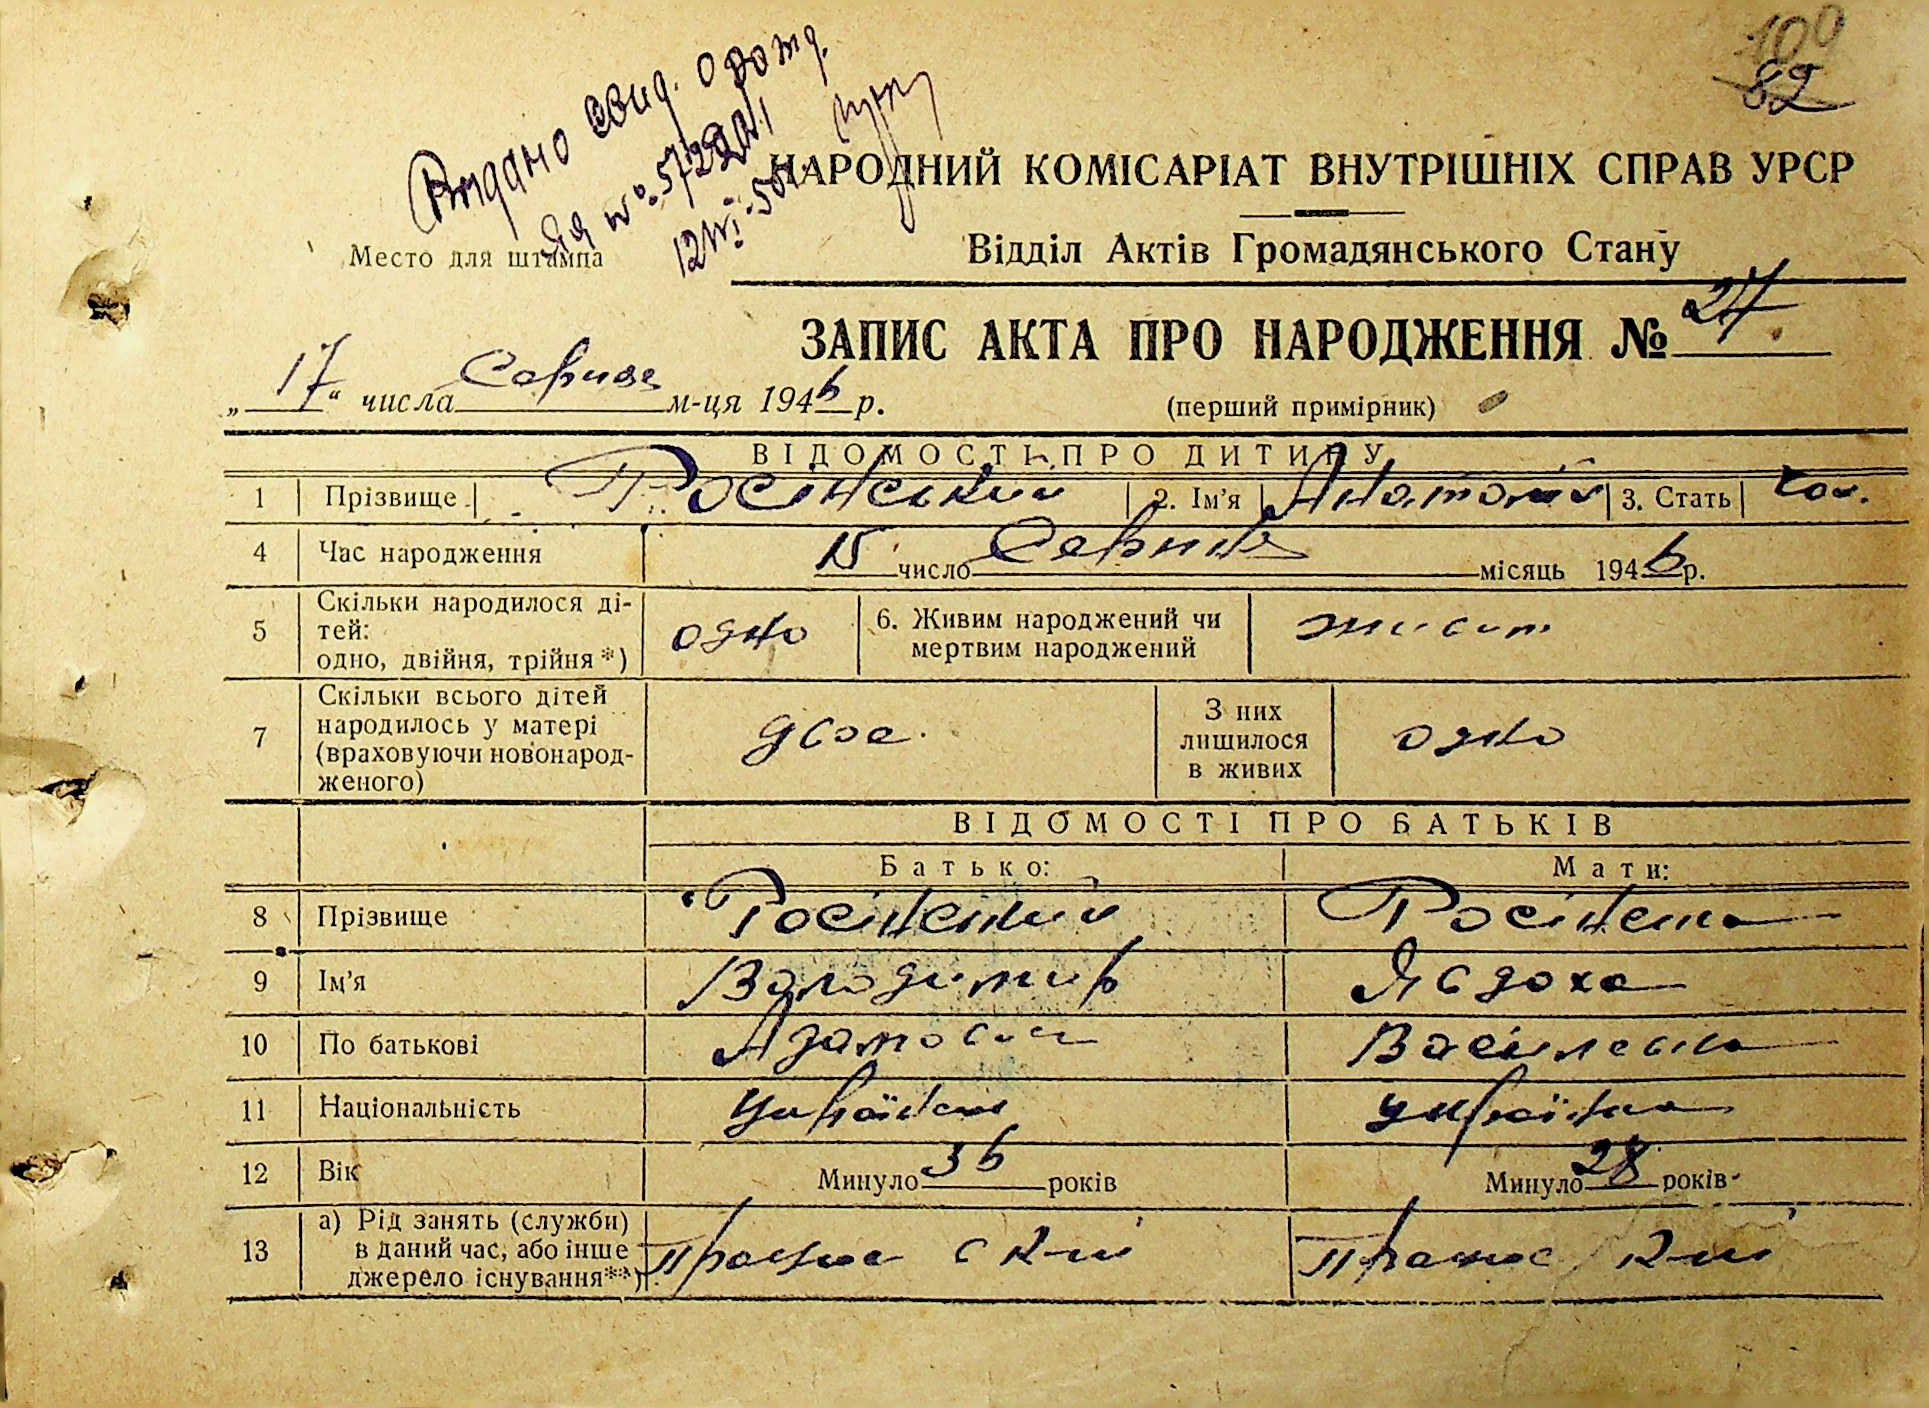 100
82
Видано свид. о рожд.
НАРОДНИЙ КОМІСАРІАТ ВНУТРІШНІХ СПРАВ УРСР
Место для штампа
Відділ Актів Громадянського Стану
ЗАПИС АКТА ПРО НАРОДЖЕННЯ № 24
„17“ числа Серпня м-ця 1946 р.
(перший примірник)
ВІДОМОСТІ ПРО ДИТИНУ
1 Прізвище Росінський 2. Ім'я Анатолій 3. Стать чол.
4 Час народження 15 число Серпня місяць 1946 р.
5 Скільки народилося ді-
тей:
одно, двійня, трійня*) одно
6. Живим народжений чи
мертвим народжений живим
7 Скільки всього дітей
народилось у матері
(враховуючи новонарод-
женого) двоє.
З них
лишилося
в живих одно
ВІДОМОСТІ ПРО БАТЬКІВ
Батько: Мати:
8 Прізвище Росінський Росінська
9 Ім'я Володимир Явдоха
10 По батькові Васильевна
11 Національність українець українка
12 Вік Минуло 36 років Минуло 28 років
13 а) Рід занять (служби)
в даний час, або інше
джерело існування**)